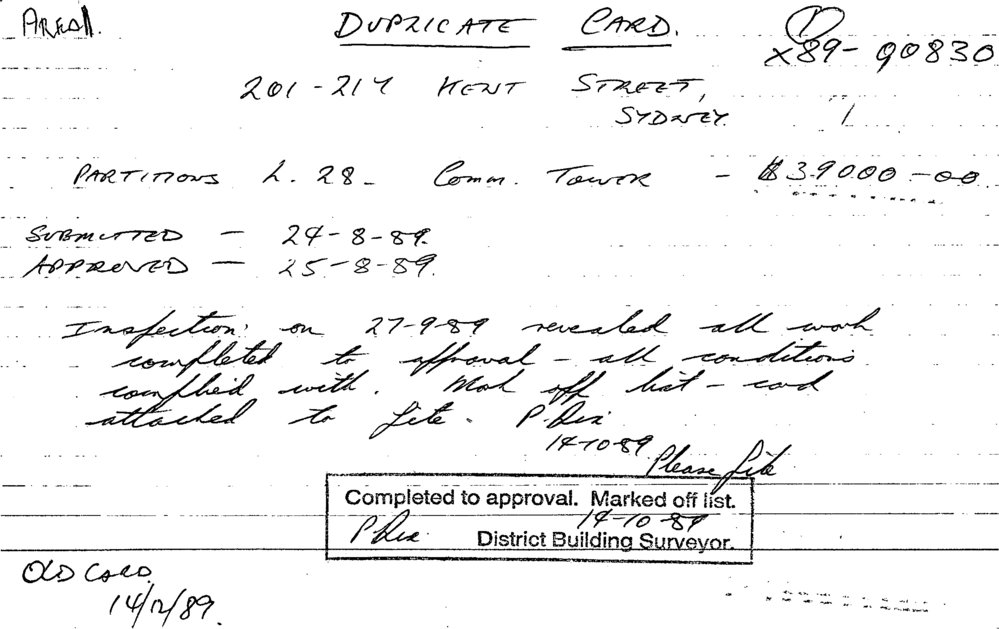 Area 1. DUPLICATE CARD. 1
X89-00830
201-217 KENT STREET,
SYDNEY. 1
PARTITIONS L. 28 - Comm. TOWER - $39000-00
SUBMITTED - 24-8-89.
APPROVED - 25-8-89.
Inspection on 27-9-89 revealed all work
completed to approval - all conditions
complied with. Mark off list - card
attached to file. P. Dix
14-10-89
Please file
Completed to approval. Marked off list.
14-10-89
P Dix District Building Surveyor.
OLD CARD.
14/12/89.